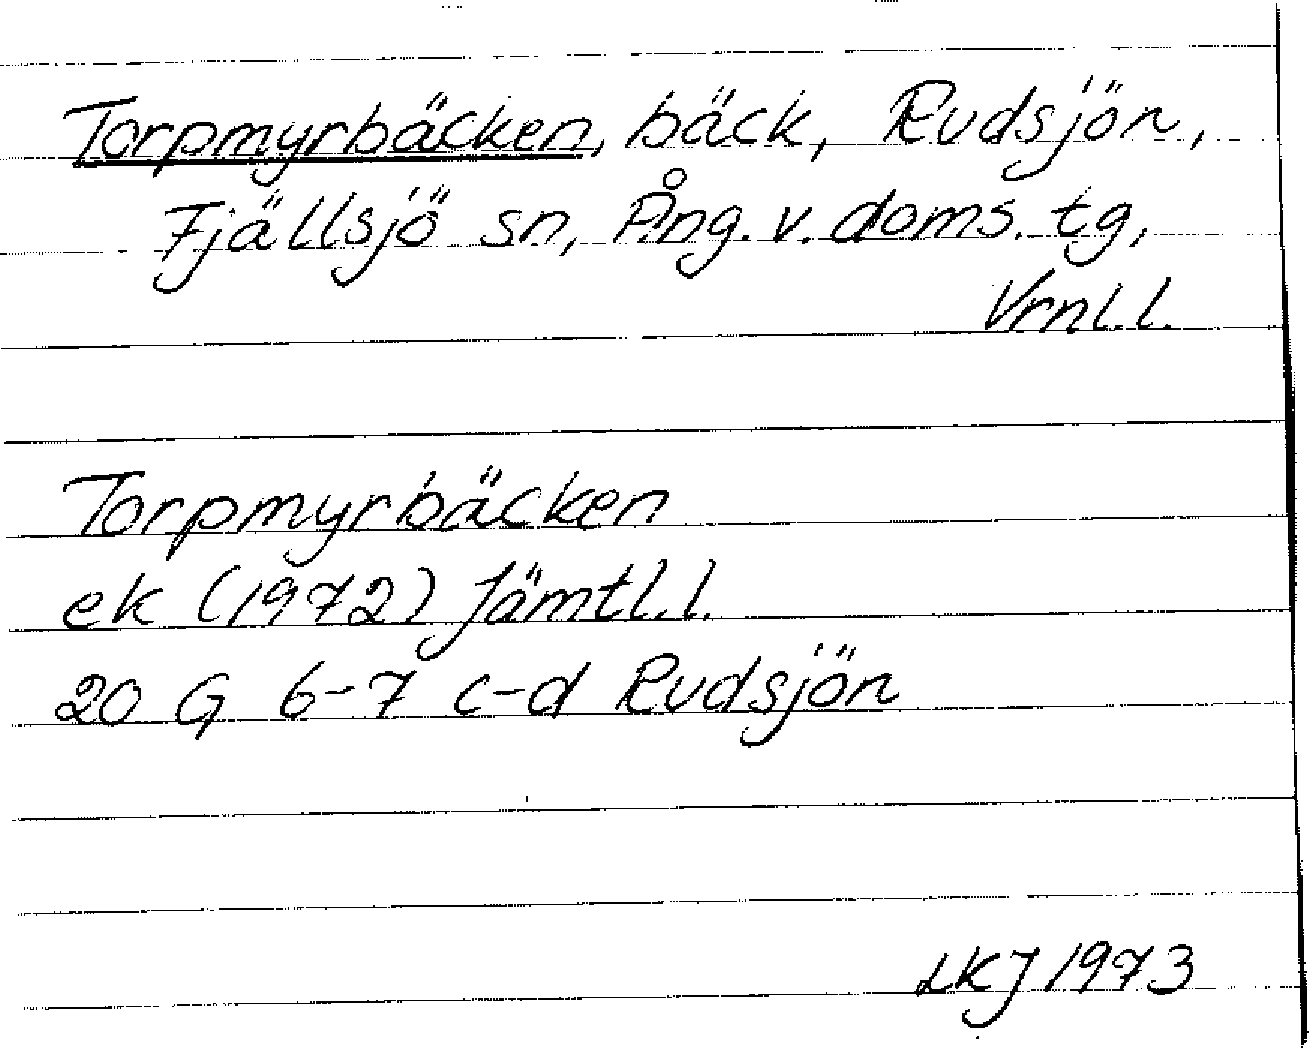 Torpmyrbäcken, bäck, Rudsjön,
Fjällsjö sn, Ång. v. doms. tg,
Vrnl. l.
Torpmyrbäcken
ek (1972) Jämtl. l.
20 G 6-7 c-d Rudsjön
LKJ 1973